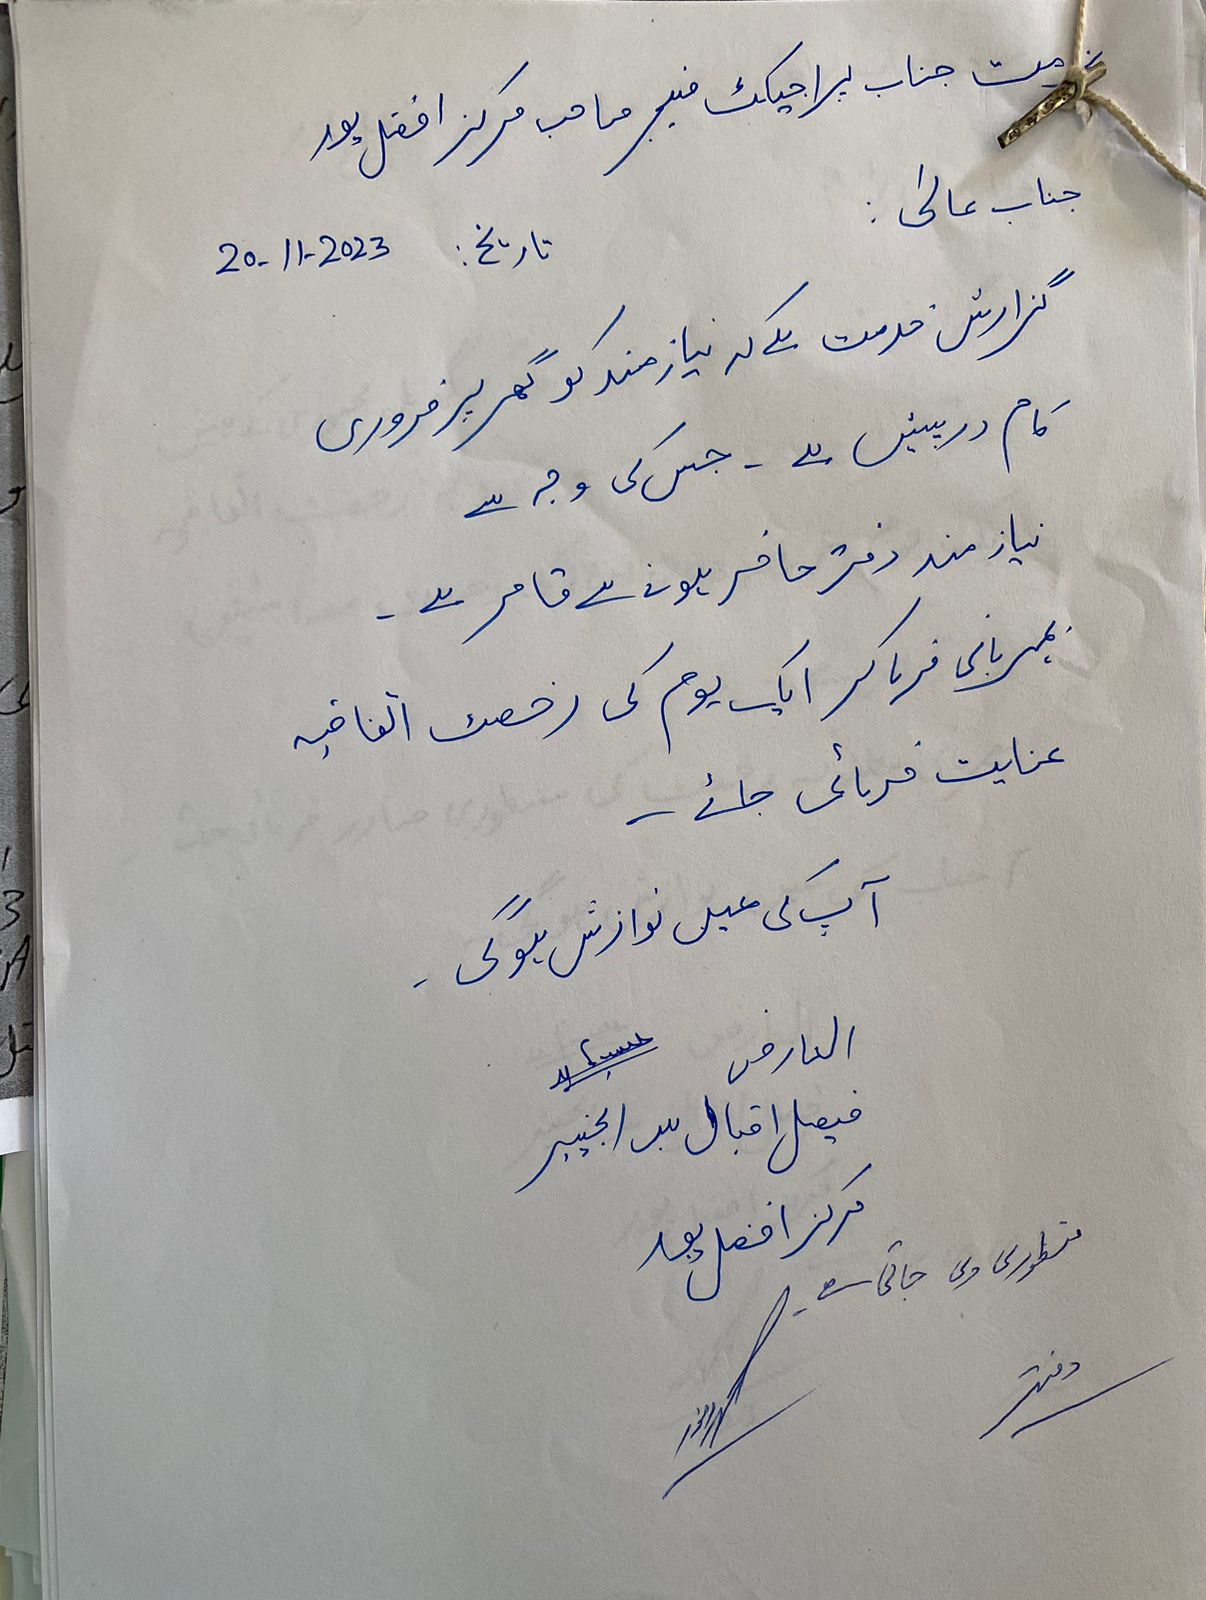 خدمت جناب پراجیکٹ منیجر صاحب مرکز افضل پور
جناب عالیٰ :
تاریخ: 20-11-2023
گزارش خدمت ہے کہ نیازمند کو گھر پر ضروری
کام درپیش ہے ۔ جس کی وجہ سے
نیازمند دفتر حاضر ہونے سے قاصر ہے ۔
بمہربانی فرما کر ایک یوم کی رخصت اتفاقیہ
عنایت فرمائی جائے ۔
آپ کی عین نوازش ہوگی ۔
العارض
فیصل اقبال سب انجینیر
مرکز افضل پور
منظوری دی جاتی ہے ۔
دفتر